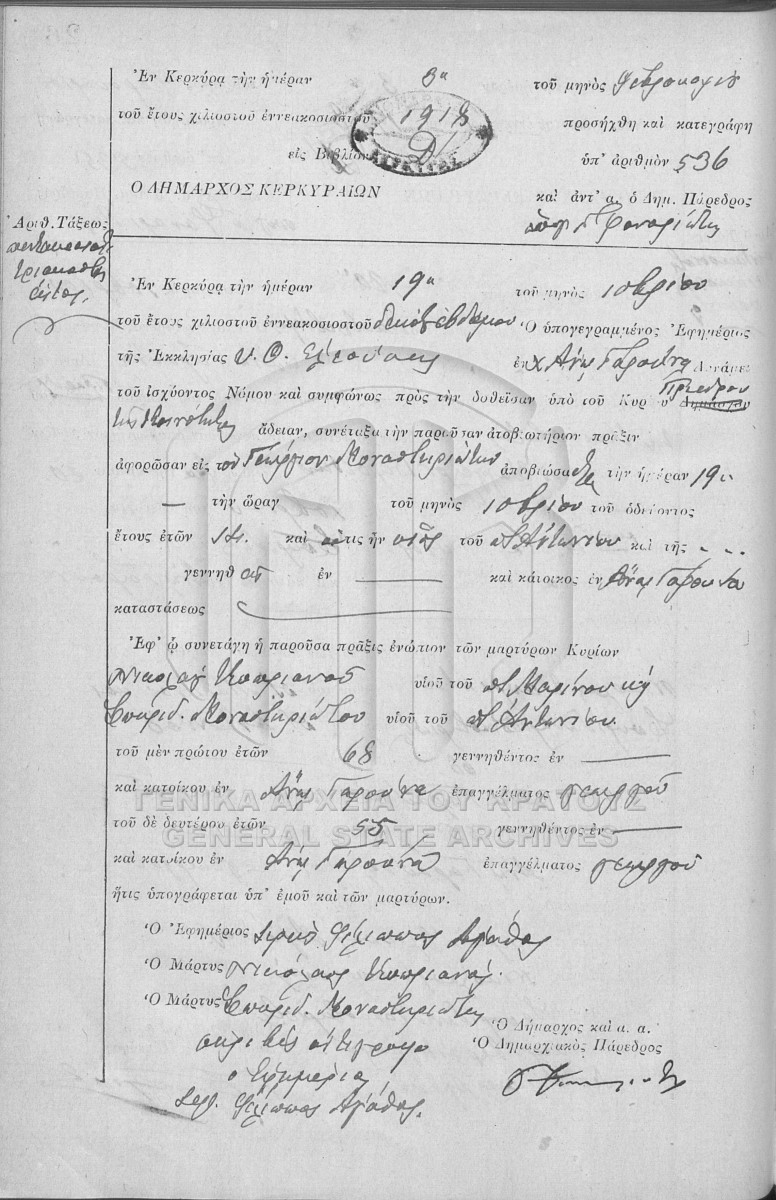 Ἐν Κερκύρᾳ τὴν ἡμέραν 3η τοῦ μηνὸς Φεβρουαρίου
τοῦ ἔτους χιλιοστοῦ ἐννεακοσιοστοῦ 1918 προσήχθη καὶ κατεγράφη
εἰς Βιβλίον ὑπ' ἀριθμὸν 536
Ο ΔΗΜΑΡΧΟΣ ΚΕΡΚΥΡΑΙΩΝ καὶ ἀντ' α. ὁ Δημ. Πάρεδρος
Ἀριθ. Τάξεως
πεντακοσιοστὸν
τριακοστὸν
ἕκτον.
Ἐν Κερκύρᾳ τὴν ἡμέραν 19η τοῦ μηνὸς 10βρίου
τοῦ ἔτους χιλιοστοῦ ἐννεακοσιοστοῦ δεκάτου ἑβδόμου Ὁ ὑπογεγραμμένος Ἐφημέριος
τῆς Ἐκκλησίας Υ. Θ. Ἐλεούσης ἐν χ. Ἄνω Γαρούνα Δυνάμει
τοῦ ἰσχύοντος Νόμου καὶ συμφώνως πρὸς τὴν δοθεῖσαν ὑπὸ τοῦ Κυρίου Δημάρχου Προέδρου
τῆς Κοινότητος ἄδειαν, συνέταξα τὴν παροῦσαν ἀποβιωτήριον πρᾶξιν
ἀφορῶσαν εἰς τὸν Γεώργιον Μοναστηριώτην ἀποβιώσαντα τὴν ἡμέραν 19η
— τὴν ὥραν τοῦ μηνὸς 10βρίου τοῦ ὁδεύοντος
ἔτους ἐτῶν καὶ ὅστις ἦν υἱὸς τοῦ π. Ἀντωνίου καὶ τῆς - - -
γεννηθ ἐν —— καὶ κάτοικος ἐν Ἄνω Γαρούνα
καταστάσεως ——
Ἐφ' ᾧ συνετάγη ἡ παροῦσα πρᾶξις ἐνώπιον τῶν μαρτύρων Κυρίων
Νικολάου Κυπριανοῦ υἱοῦ τοῦ π. Μαρίνου καὶ
Σπυρίδ. Μοναστηριώτου υἱοῦ τοῦ π. Ἀντωνίου
τοῦ μὲν πρώτου ἐτῶν 68 γεννηθέντος ἐν ——
καὶ κατοίκου ἐν Ἄνω Γαρούνα ἐπαγγέλματος γεωργοῦ
ΓΕΝΙΚΑ ΑΡΧΕΙΑ ΤΟΥ ΚΡΑΤΟΥΣ
τοῦ δὲ δευτέρου ἐτῶν 55 γεννηθέντος ἐν ——
GENERAL STATE ARCHIVES
καὶ κατοίκου ἐν Ἄνω Γαρούνα ἐπαγγέλματος γεωργοῦ
ἥτις ὑπογράφεται ὑπ' ἐμοῦ καὶ τῶν μαρτύρων.
Ὁ Ἐφημέριος Φίλιππος Ἀγάθος
Ὁ Μάρτυς Νικόλαος Κυπριανός.
Ὁ Μάρτυς Σπυρίδ. Μοναστηριώτης
ἀκριβὲς ἀντίγραφον
ὁ Ἐφημέριος
Φίλιππος Ἀγάθος.
Ὁ Δήμαρχος καὶ α. α.
Ὁ Δημαρχιακὸς Πάρεδρος